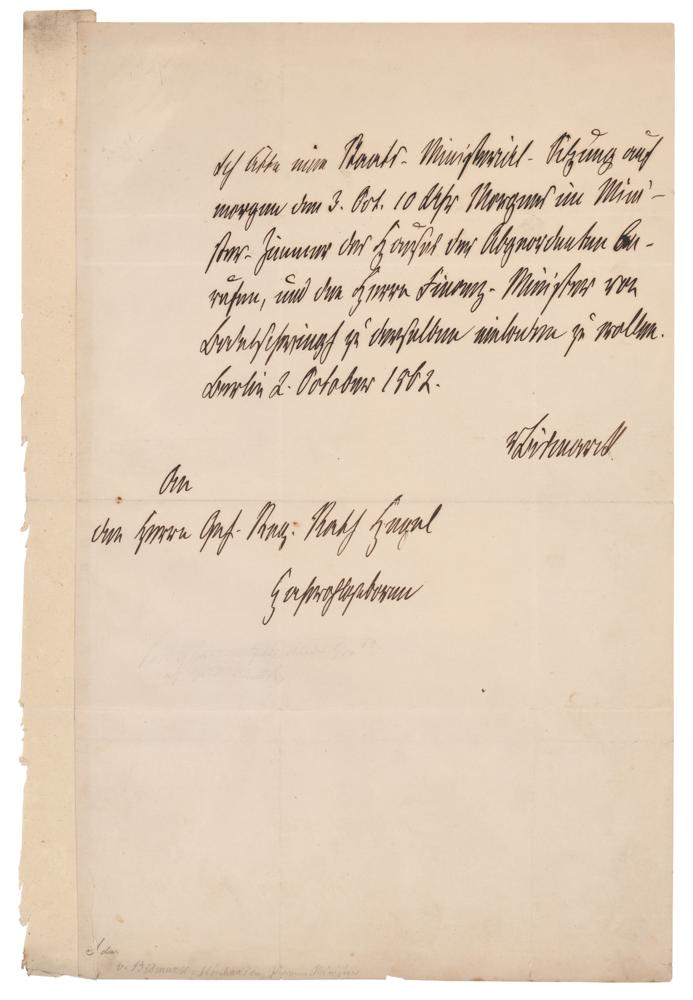 Ich bitte eine Staats-Ministerial-Sitzung auf
morgen den 3. Oct. 10 Uhr Morgens im Mini-
ster-Zimmer des Hauses der Abgeordneten be-
rufen, und den Herrn Finanz-Minister von
Bodelschwingh zu derselben einladen zu wollen.
Berlin 2. October 1862.
vBismarck
An
den Herrn Geh. Reg. Rath Hegel
Hochwohlgeboren
v. Bismarck-Schönhausen, Minister